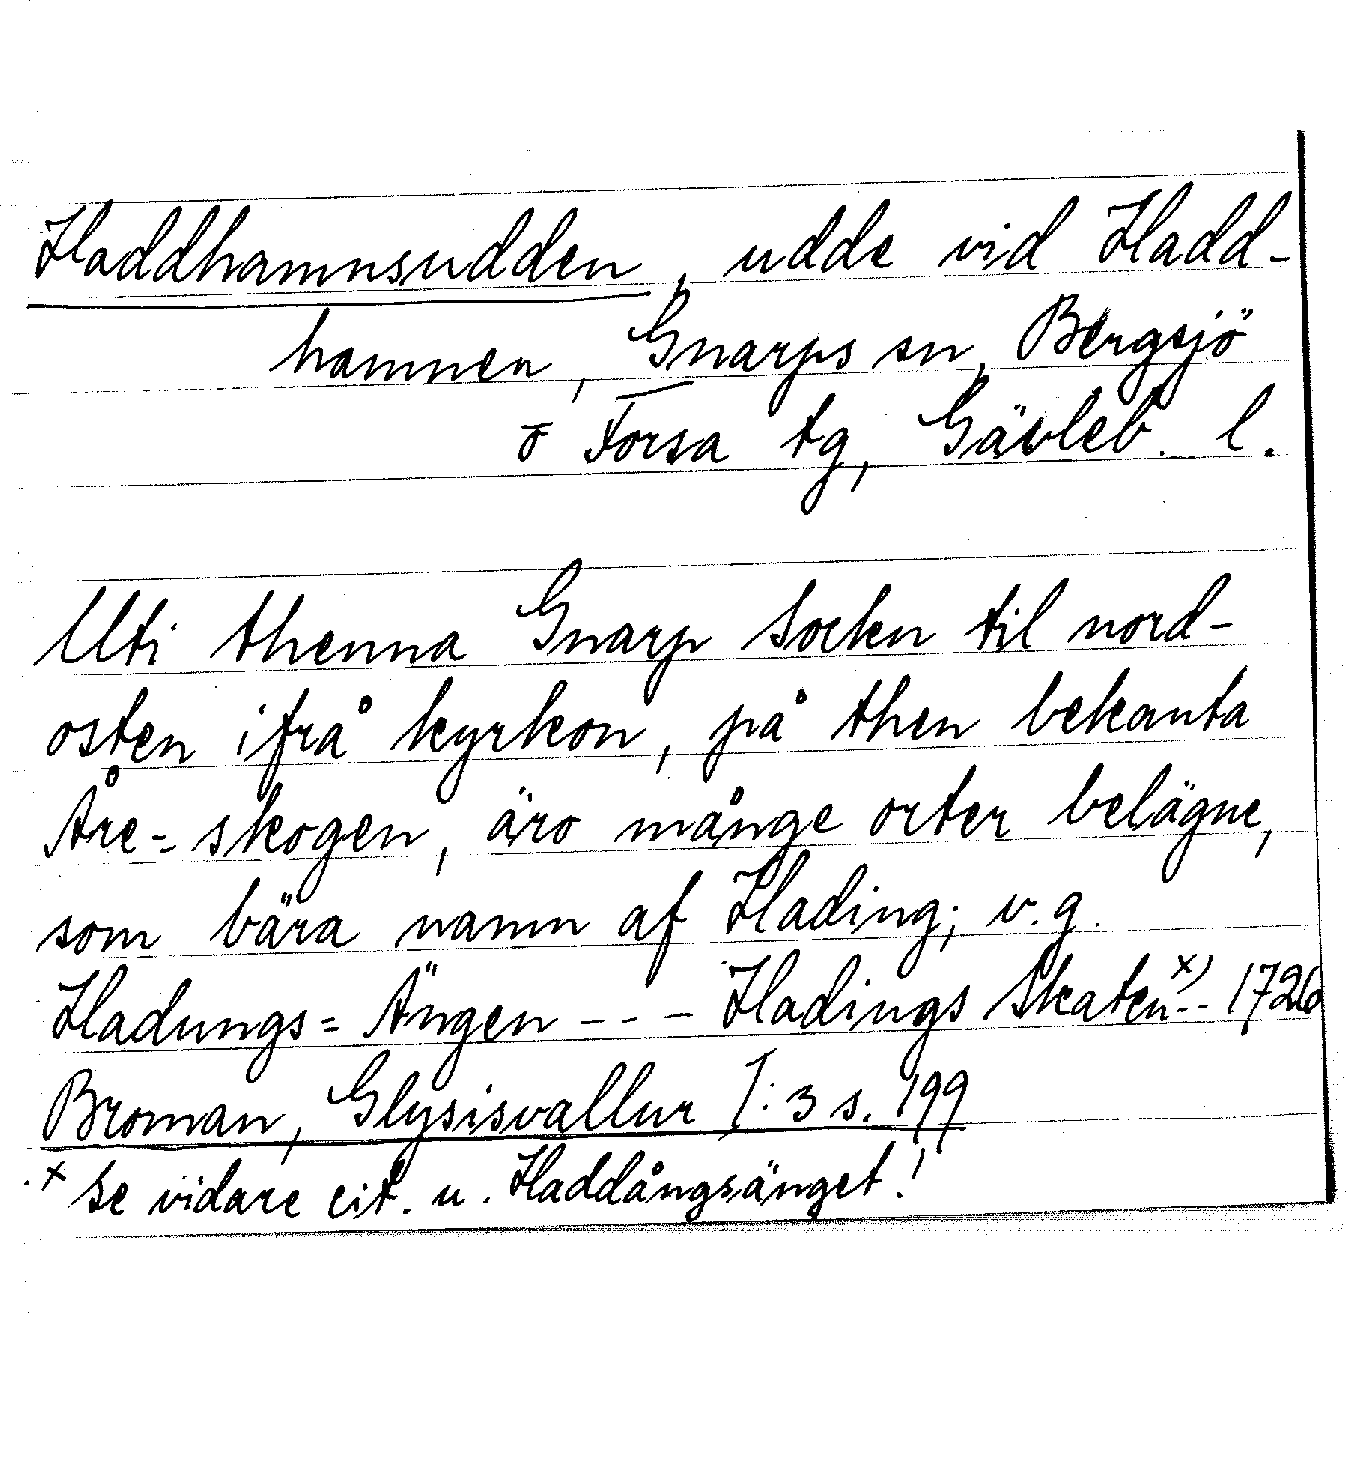 Haddhamnsudden, udde vid Hadd-
hamnen, Gnarps sn, Bergsjö
o Forsa tg, Gävleb. l.
Uti thenna Gnarp Socken til nord-
osten ifrå kyrkon, på then bekanta
Åre=skogen, äro månge orter belägne,
som bära namn af Hading; v.g.
Hadungs=Ängen --- Hadings Skaten x) -- 1726
Broman, Glysisvallur I:3 s. 199
x Se vidare cit. u. Haddångsänget!